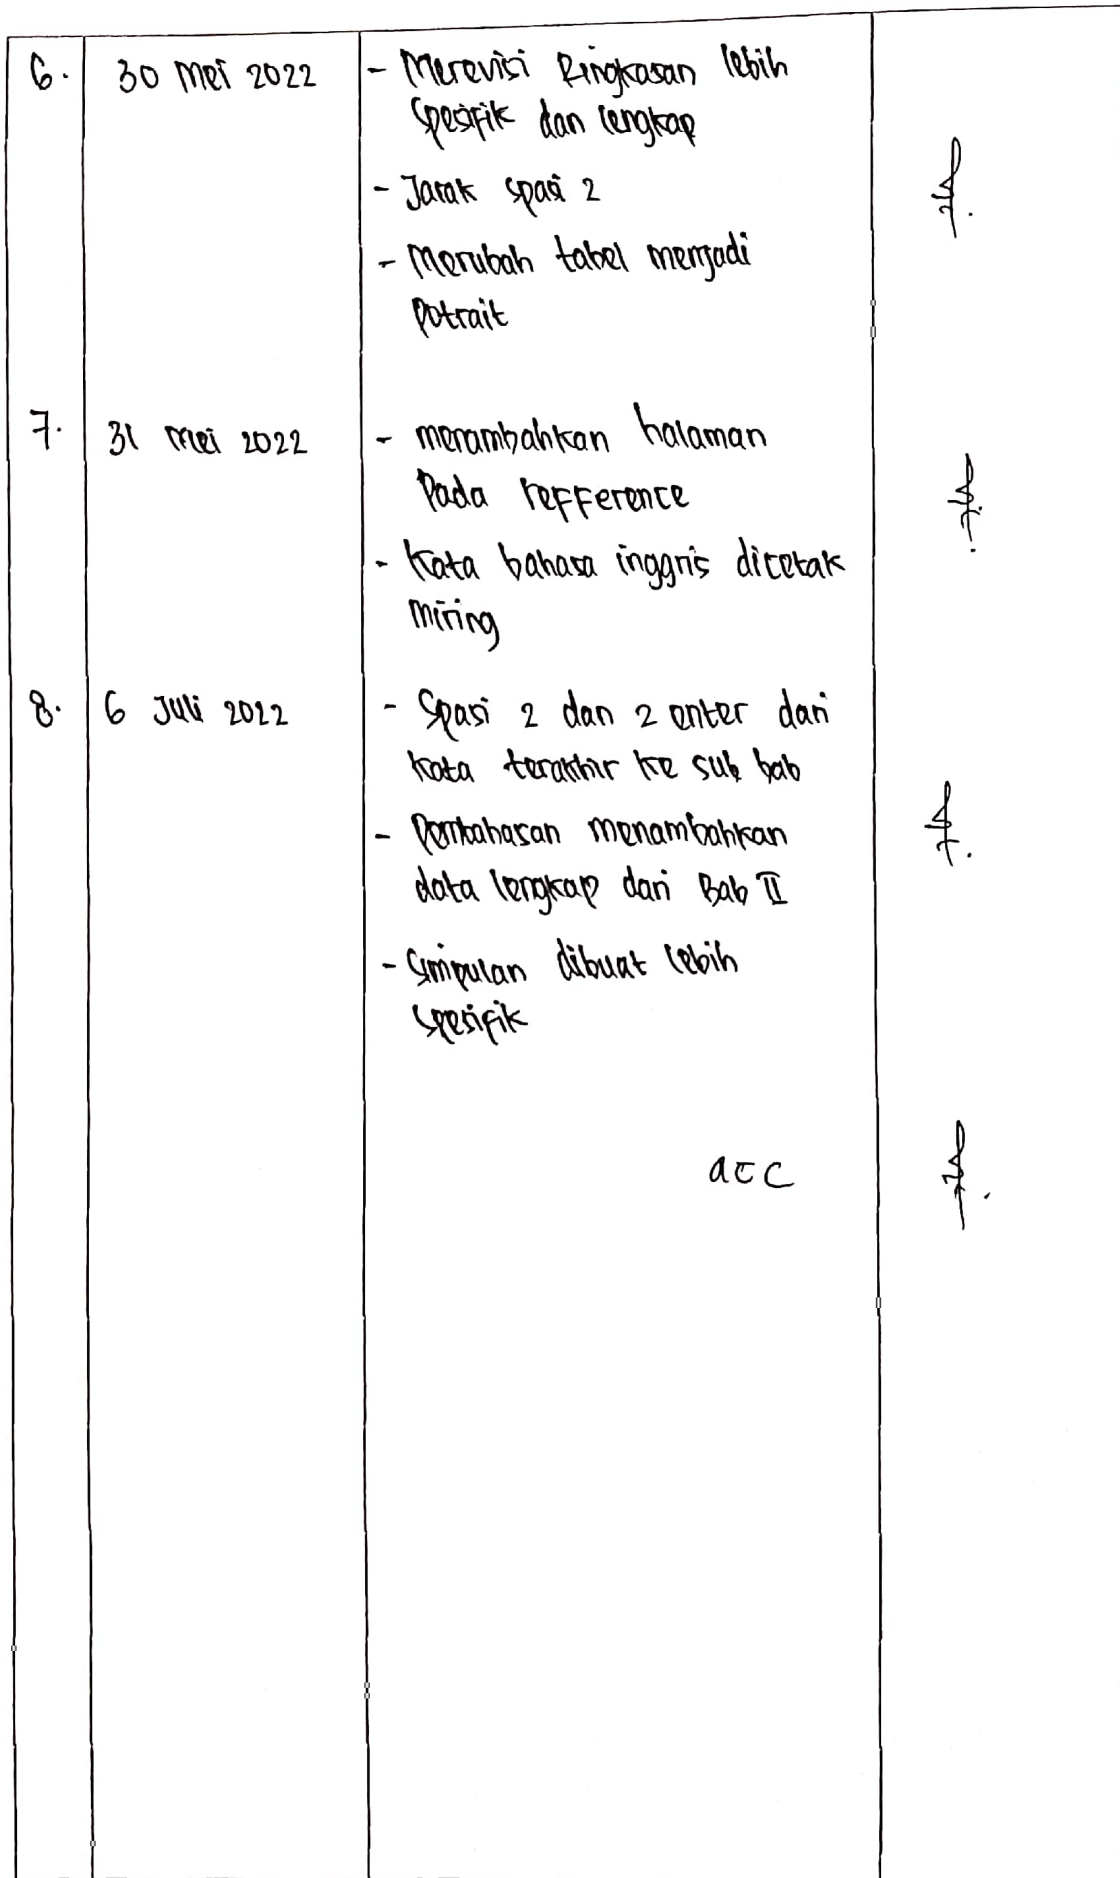 6. 30 Mei 2022 - Merevisi Ringkasan lebih
spesifik dan lengkap
- Jarak spasi 2
- Merubah tabel menjadi
Potrait
7. 31 Mei 2022 - menambahkan halaman
Pada refference
- Kata bahasa inggris dicetak
miring
8. 6 Juli 2022 - Spasi 2 dan 2 enter dari
kata terakhir ke sub bab
- Pembahasan menambahkan
data lengkap dari Bab II
- Simpulan dibuat lebih
spesifik
acc